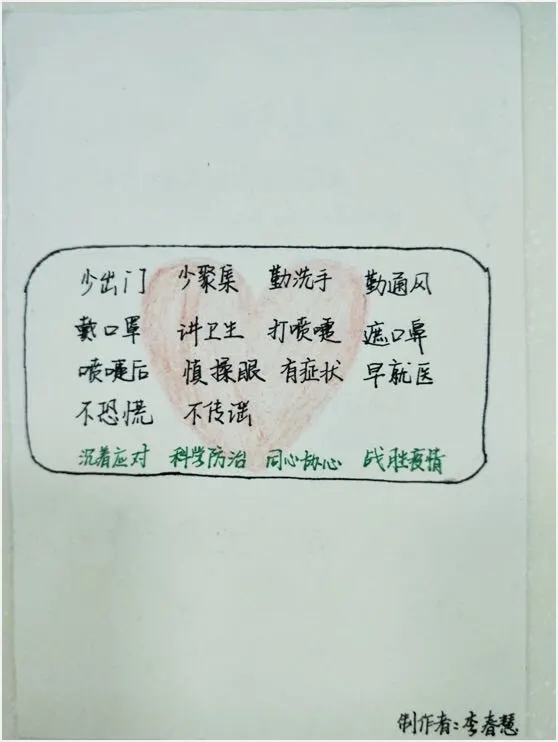 少出门 少聚集 勤洗手 勤通风
戴口罩 讲卫生 打喷嚏 遮口鼻
喷嚏后 慎揉眼 有症状 早就医
不恐慌 不传谣
沉着应对 科学防治 同心协心 战胜疫情
制作者:李春慧